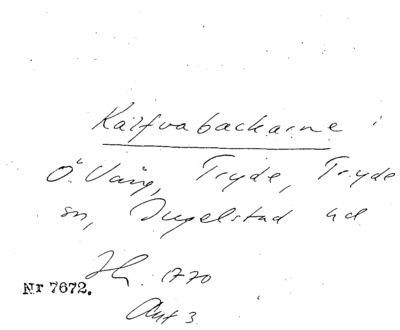 Kalfvabackarne i
Ö. Vång, Tryde, Tryde
sn, Ingelstad hd
1770
Nr 7672.
Akt 3